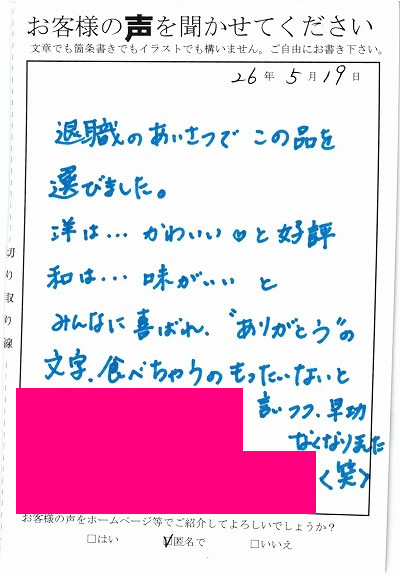 お客様の声を聞かせてください
文章でも箇条書きでもイラストでも構いません。ご自由にお書き下さい。
26年5月19日
退職のあいさつで この品を
選びました。
洋は…かわいい♡と好評
和は…味がいい と
みんなに喜ばれ、“ありがとう”の
文字、食べちゃうのもったいないと
言いつつ、早功
なくなりました
〈笑〉
切り取り線
お客様の声をホームページ等でご紹介してよろしいでしょうか？
□はい ☑匿名で □いいえ